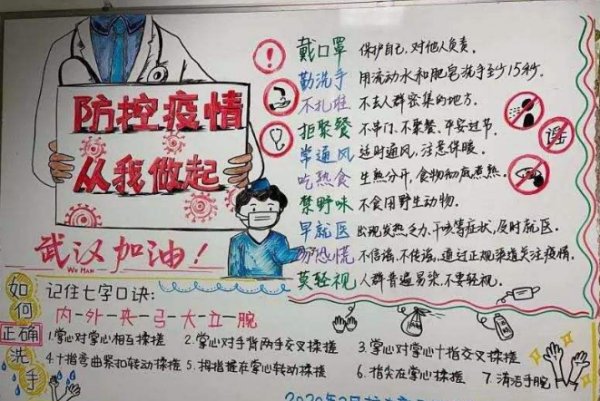 防控疫情
从我做起
武汉加油！
WU HAN
戴口罩 保护自己,对他人负责.
勤洗手 用流动水和肥皂洗手至少15秒.
不扎堆 不去人群密集的地方.
拒聚餐 不串门.不聚餐.平安过节.
常通风 适时通风,注意保暖.
吃热食 生熟分开,食物彻底煮熟.
禁野味 不食用野生动物.
早就医 出现发热乏力、干咳等症状,及时就医.
勿恐慌 不信谣、不传谣,通过正规渠道关注疫情.
莫轻视 人群普遍易染.不要轻视.
谣
如何正确洗手
记住七字口诀:
内-外-夹-弓-大-立-腕
1.掌心对掌心相互揉搓 2.掌心对手背两手交叉揉搓 3.掌心对掌心十指交叉揉搓
4.十指弯曲紧扣转动揉搓 5.拇指握在掌心转动揉搓 6.指尖在掌心揉搓 7.清洁手腕